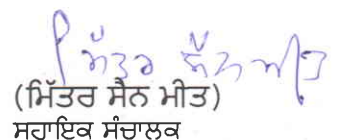 ਮਿੱਤਰ ਸੈਨ ਮੀਤ
(ਮਿੱਤਰ ਸੈਨ ਮੀਤ)
ਸਹਾਇਕ ਸੰਚਾਲਕ